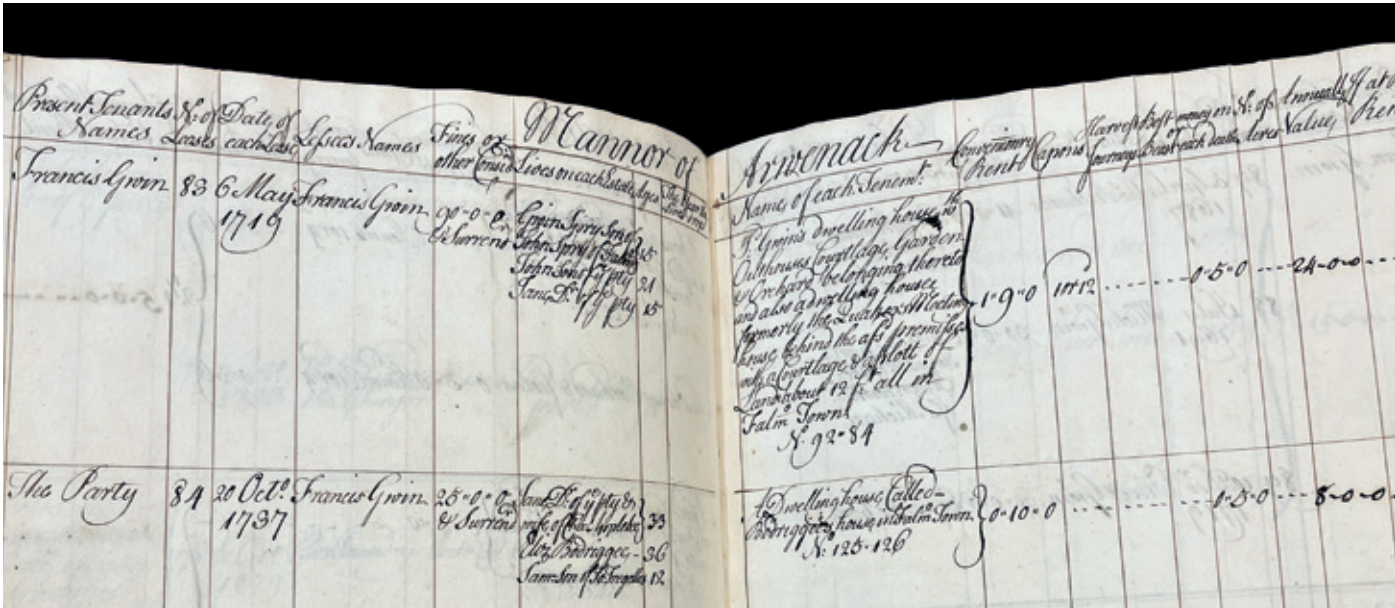 Mannor of Arwenack
Present Tenants Names
No. of Leases
Date of each Lease
Lessees Names
Fines or other Consid
Lives on each Estate
Ages
Name of each Tenemt.
Conventionary Rent
Capons
Harvest Journeys
Best Beast
money on each death
No. of Acres
Annually Value
Francis Gwin 83 6 May 1719 Francis Gwin 90=0=0
& Surrendr
Gwin Spry Son of
John Spry of 35
John Son of ye pty 21
Jane Dr. of ye pty 15
Gwin's dwelling house wth
Outhouses Courtlage, Garden
& Orchard belonging thereto
and also a dwelling house
formerly the Quakers Meeting
house behind the afsd premisses
with a Courtlage & plott of
Land about 12 ft all in
Falmo Town
No. 92=84
1=9=0
0=5=0
24=0=0
The Party 84 20 Octo. 1737 Francis Gwin 25=0=0
& Surrendr
Jane Dr. of ye pty &
wife of 33
Eliz Bodriggee 36
Sam Son of 12
A Dwelling house Called
Bodriggee's house in Falmo Town
No. 125=126
0=10=0
0=5=0
8=0=0